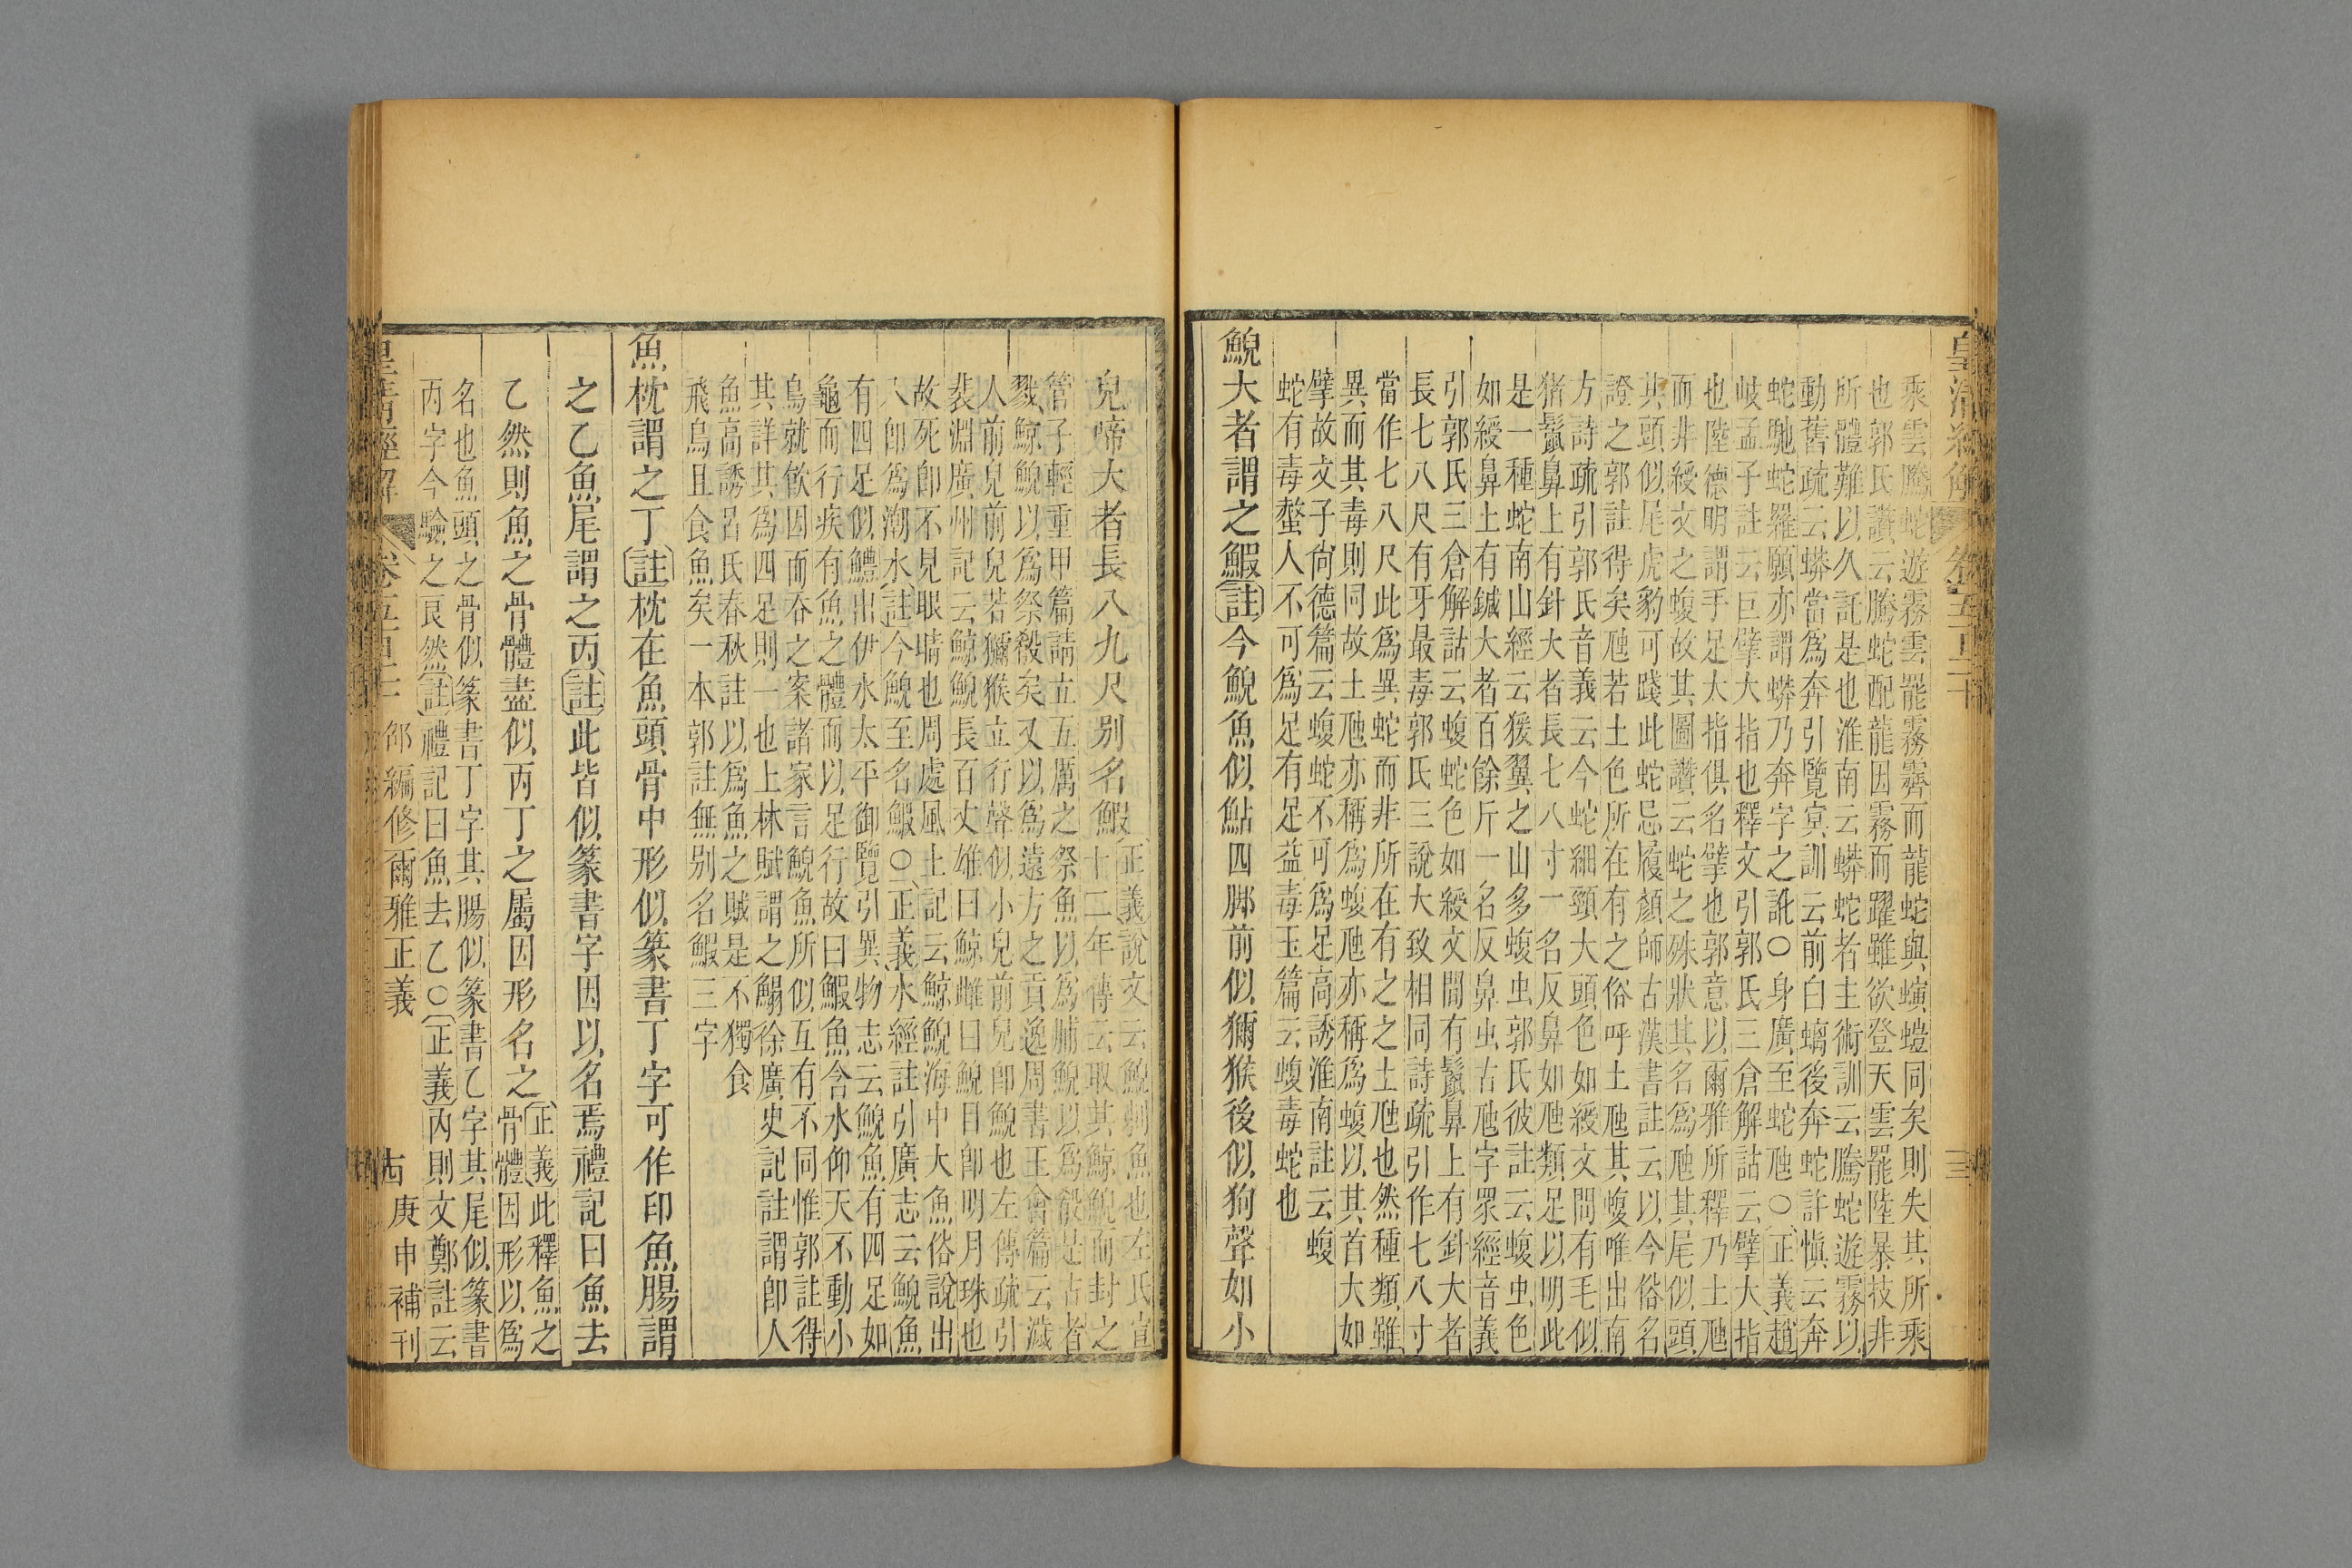 乘雲騰蛇遊霧雲罷霧霽而龍蛇與螾螘同矣則失其所乘
也郭氏讚云騰蛇配龍因霧而躍雖欲登天雲罷陸暴技非
所體難以久託是也淮南云蟒蛇者主術訓云騰蛇遊霧以
動舊疏云蟒當爲奔引覽冥訓云前白螭後奔蛇許愼云奔
蛇馳蛇羅願亦謂蟒乃奔字之訛〇身廣至蛇虺〇正義趙
岐孟子註云巨擘大指也釋文引郭氏三倉解詁云擘大指
也陸德明謂手足大指俱名擘也郭意以爾雅所釋乃土虺
而非綬文之蝮故其圖讚云蛇之殊狀其名爲虺其尾似頭
其頭似尾虎豹可踐此蛇忌履顏師古漢書註云以今俗名
證之郭註得矣虺若土色所在有之俗呼土虺其蝮唯出南
方詩疏引郭氏音義云今蛇細頸大頭色如綬文文間有毛似
猪鬣鼻上有針大者長七八寸一名反鼻如虺類足以明此
是一種蛇南山經云猨翼之山多蝮虫郭氏彼註云蝮虫色
如綬鼻上有鍼大者百餘斤一名反鼻虫古虺字眾經音義
引郭氏三倉解詁云蝮蛇色如綬文間有鬣鼻上有針大者
長七八尺有牙最毒郭氏三說大致相同詩疏引作七八寸
當作七八尺此爲異蛇而非所在有之之土虺也然種類雖
異而其毒則同故土虺亦稱爲蝮虺亦稱爲蝮以其首大如
擘故文子尙德篇云蝮蛇不可爲足高誘淮南註云蝮
蛇有毒螫人不可爲足有足益毒玉篇云蝮毒蛇也
鯢大者謂之鰕註今鯢魚似鮎四脚前似獼猴後似狗聲如小
兒啼大者長八九尺别名鰕正義說文云鯢剌魚也左氏宣
十二年傳云取其鯨鯢而封之
管子輕重甲篇請立五厲之祭魚以爲脯鯢以爲殽是古者
戮鯨鯢以爲祭殽矣又以爲遠方之貢逸周書王會篇云濊
人前兒前兒若獼猴立行聲似小兒前兒卽鯢也左傳疏引
裴淵廣州記云鯨鯢長百丈雄曰鯨雌曰鯢目卽明月珠也
故死卽不見眼睛也周處風土記云鯨鯢海中大魚俗說出
入卽爲潮水註今鯢至名鰕〇正義水經註引廣志云鯢魚
有四足似鱧出伊水太平御覽引異物志云鯢魚有四足如
龜而行疾有魚之體而以足行故曰鰕魚含水仰天不動小
鳥就飮因而吞之案諸家言鯢魚所似互有不同惟郭註得
其詳其爲四足則一也上林賦謂之鰨徐廣史記註謂卽人
魚高誘呂氏春秋註以爲魚之賊是不獨食
飛鳥且食魚矣一本郭註無别名鰕三字
魚枕謂之丁註枕在魚頭骨中形似篆書丁字可作印魚腸謂
之乙魚尾謂之丙註此皆似篆書字因以名焉禮記曰魚去
乙然則魚之骨體盡似丙丁之屬因形名之正義此釋魚之
骨體因形以爲
名也魚頭之骨似篆書丁字其腸似篆書乙字其尾似篆書
丙字今驗之艮然註禮記曰魚去乙〇正義內則文鄭註云
皇淸經解
卷五百二十
邵編修爾雅正義
庚申補刊